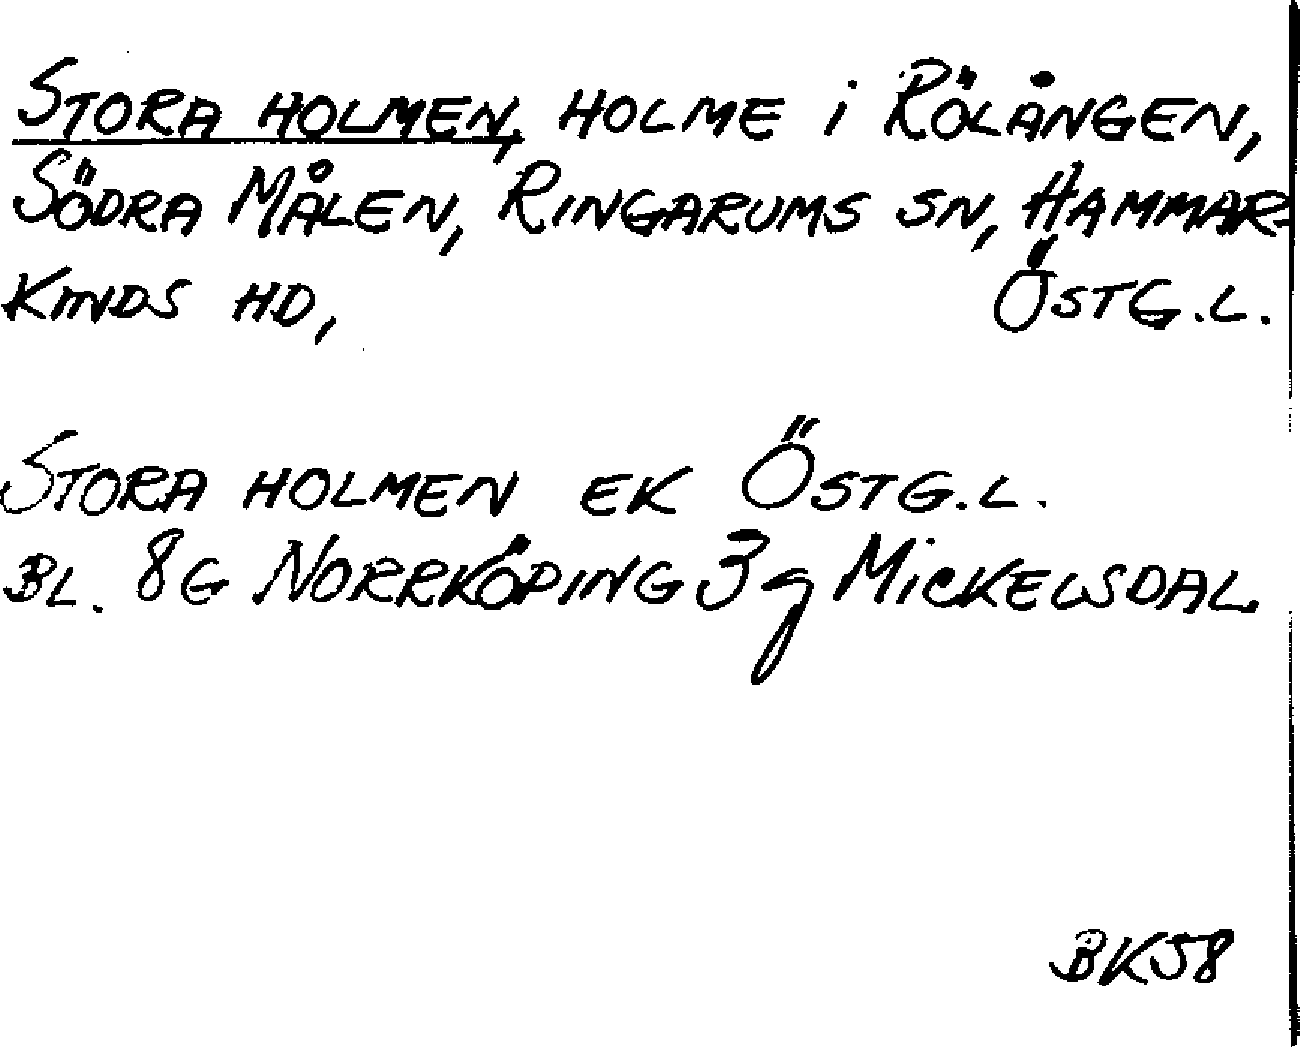 STORA HOLMEN, HOLME i RÖLÅNGEN,
SÖDRA MÅLEN, RINGARUMS SN, HAMMAR-
KINDS HD, ÖSTG.L.
STORA HOLMEN EK ÖSTG.L.
BL. 8G NORRKÖPING 3g MICKELSDAL
BK58